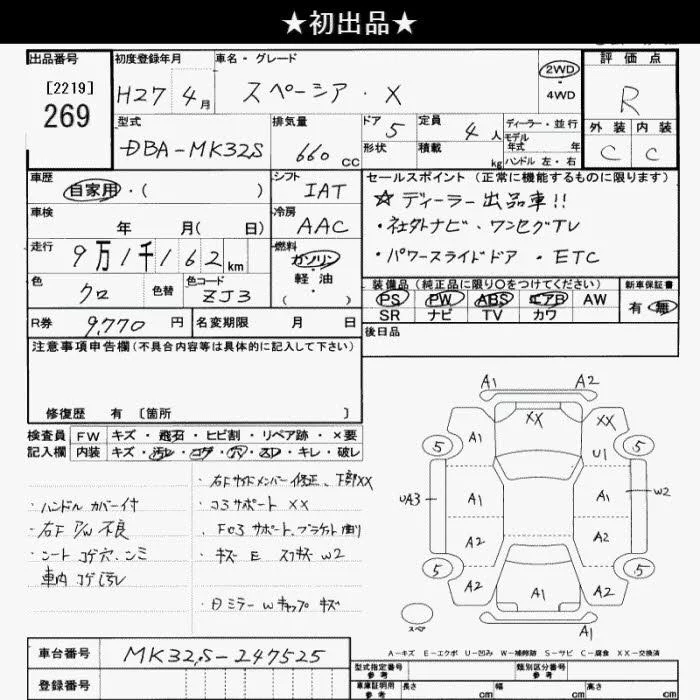 ★初出品★
出品番号
[2219]
269
初度登録年月
H27 4月
車名・グレード
スペーシア・X
2WD
・
4WD
評価点
R
外装 内装
C C
型式
DBA-MK32S
排気量
660 cc
ドア 5
形状
定員 4人
積載 kg
ディーラー・並行
モデル
年式 年
ハンドル 左・右
車歴
自家用・( )
シフト
IAT
セールスポイント (正常に機能するものに限ります)
☆ ディーラー出品車!!
・社外ナビ、ワンセグTV
・パワースライドドア・ETC
車検
年 月( 日)
冷房
AAC
走行
9万1千162km
燃料
ガソリン
・
軽油
( ・ )
色
クロ
色替
色コード
ZJ3
装備品 (純正品に限り○をつけてください)
PS PW ABS エアB AW
SR ナビ TV カワ
新車保証書
有・無
R券 9,770円
名変期限 月 日
後日品
注意事項申告欄(不具合内容等は具体的に記入して下さい)
修復歴 有 〔箇所 〕
検査員
記入欄
FW キズ・飛石・ヒビ割・リペア跡・×要
内装 キズ・汚レ・コゲ・穴・スレ・キレ・破レ
・ハンドルカバー付
・右F P/W 不良
・シート コゲ穴、シミ
車内 コゲ汚レ
・右Fサイドメンバー修正、下部XX
・コヨサポート XX
・キズ E スリキズ W2
・日ミラー Wキャップ キズ
A1 A2
XX XX
A1 U1
5 5
UA3 A1 A1 W2
A2 A2
5 5
A2 A1 A2
スペア
A1
A-キズ E-エクボ U-凹み W-補修跡 S-サビ C-腐食 XX-交換済
車台番号 MK32S-247525
登録番号
型式指定番号
参考
類別区分番号
参考
車庫証明用
参考
長さ cm 幅 cm 高さ cm